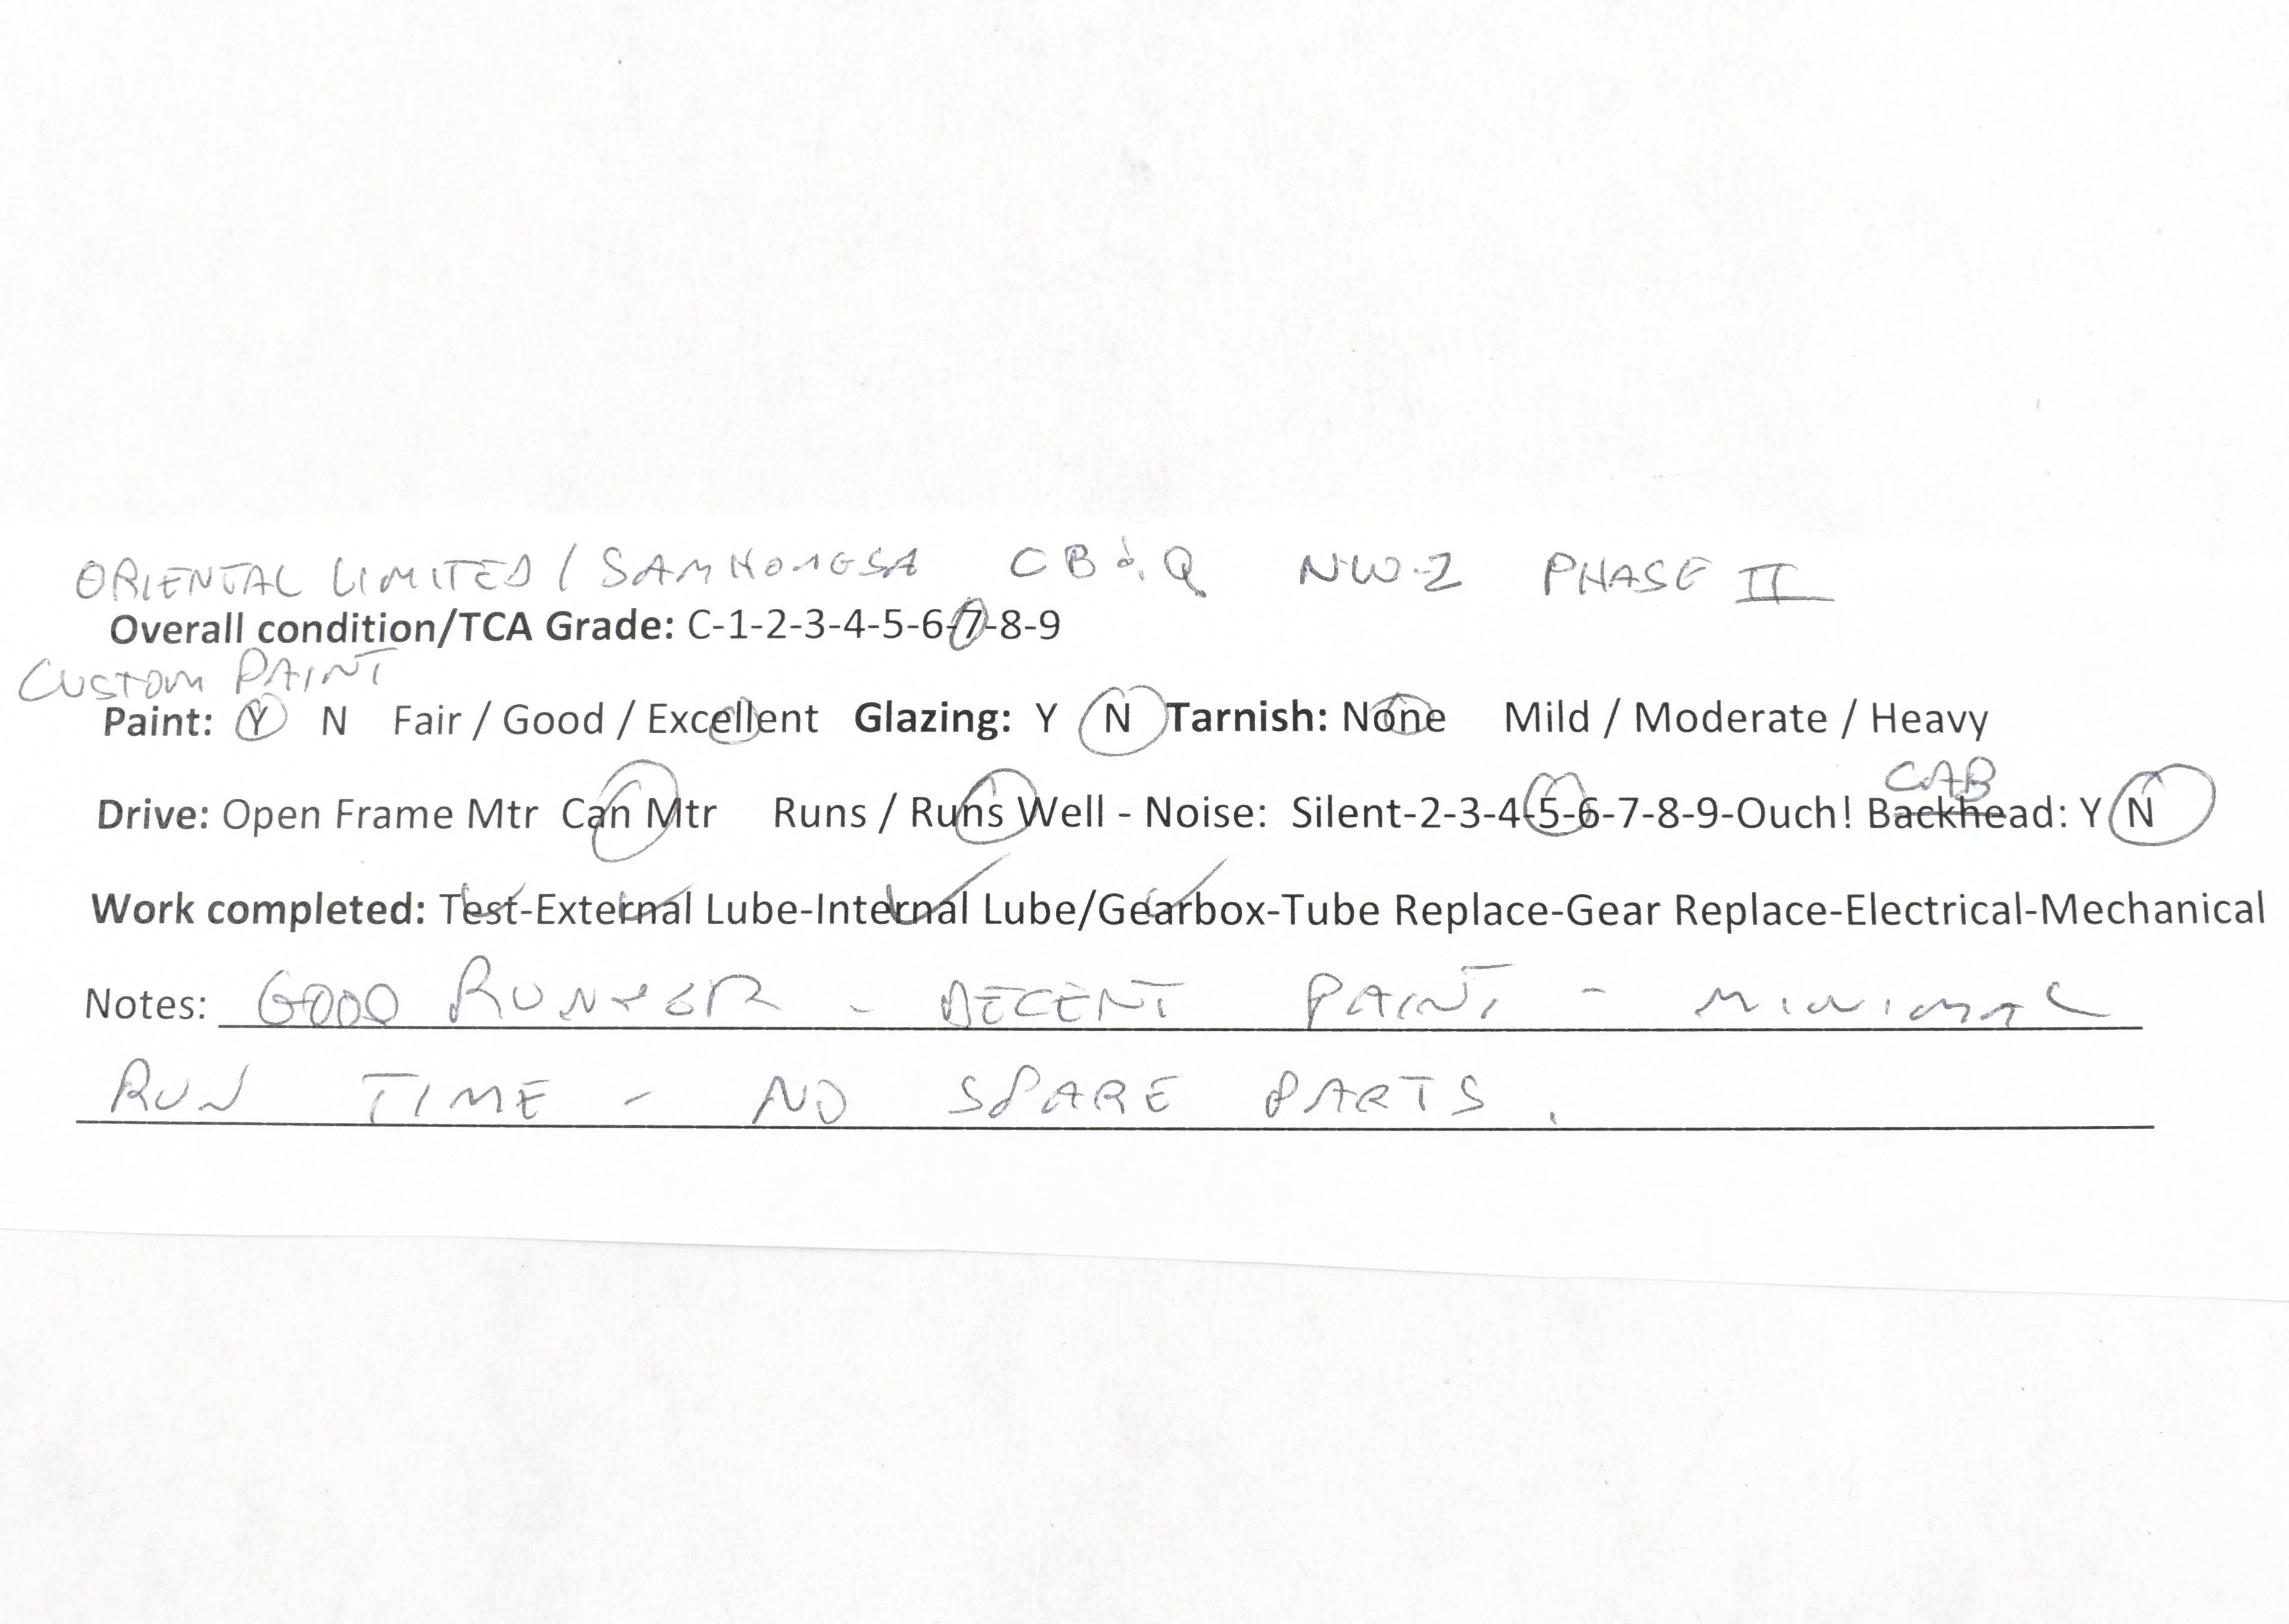 ORIENTAL LIMITED / SAMHONGSA CB&Q NW-2 PHASE II
Overall condition/TCA Grade: C-1-2-3-4-5-6-7-8-9
CUSTOM PAINT
Paint: Y N Fair / Good / Excellent Glazing: Y N Tarnish: None Mild / Moderate / Heavy
CAB
Drive: Open Frame Mtr Can Mtr Runs / Runs Well - Noise: Silent-2-3-4-5-6-7-8-9-Ouch! Backhead: Y N
Work completed: Test-External Lube-Internal Lube/Gearbox-Tube Replace-Gear Replace-Electrical-Mechanical
Notes: GOOD RUNNER - DECENT PAINT - MINIMAL
RUN TIME - NO SPARE PARTS.